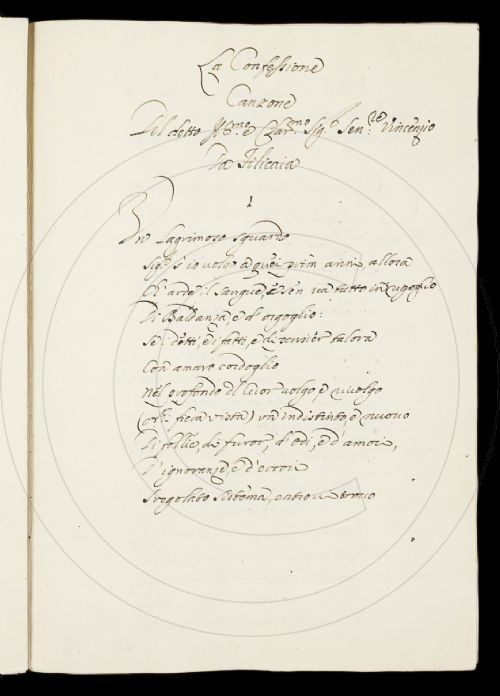 La Confessione
Canzone
Del detto Ill.mo e Sig.r Sen.re Vincenzio
Da Filicaia
1
Un lagrimoso sguardo
Sig.r s'io volgo a quei prim'anni, allora
Ch'arde il sangue, e sen va tutto in rigoglio
Di Baldanza, e d'orgoglio:
Se i detti, e i fatti, e i talora
Con amaro cordoglio
Nel profondo del cuor volgo e rivolgo
(Ohi fiera vista) un indistinto, e nuovo
Di follie, di furor, d'odi, e d'amori,
D'ignoranze, e d'errori
Sregolato sistema, entro vi trovo